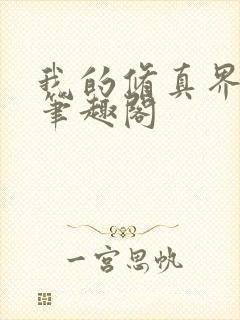 我的修真界
笔趣阁
一宫思帆